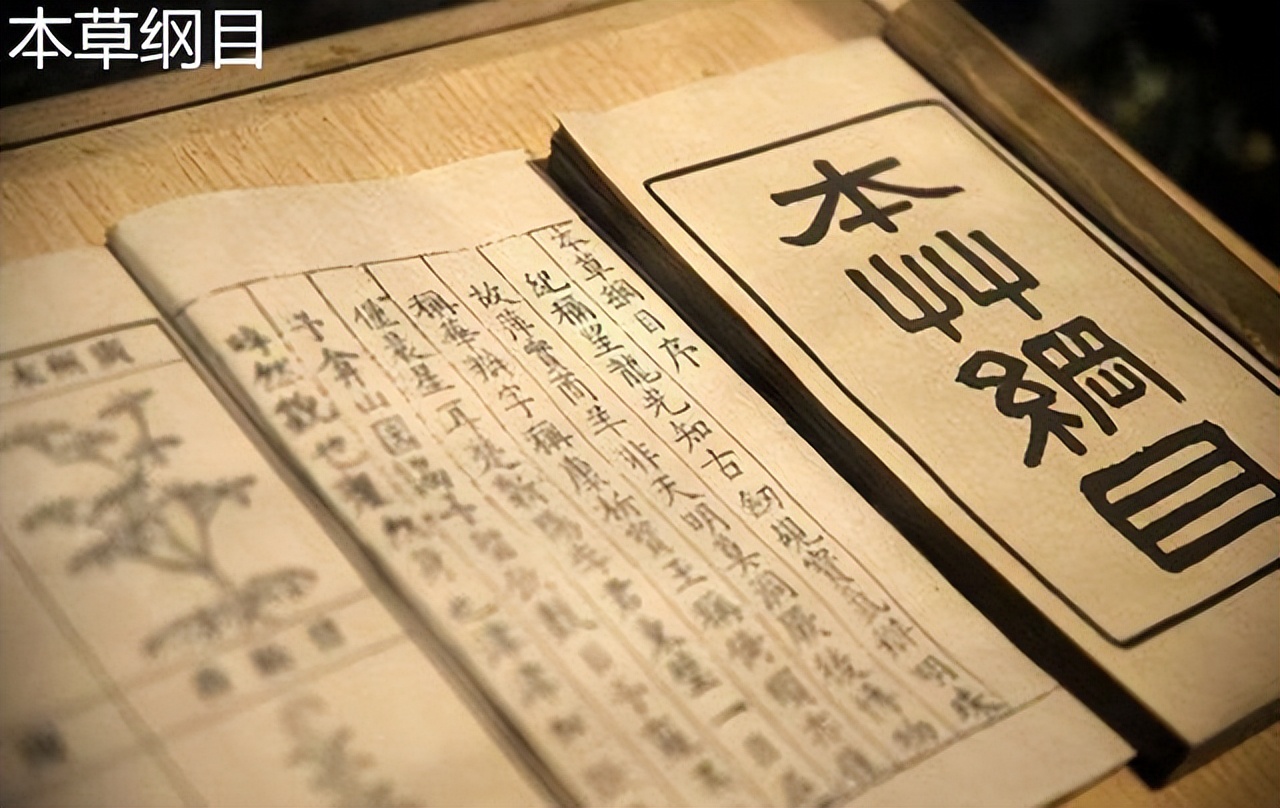 本草纲目
本草綱目
本草綱目序
紀稱望龍光知古劍覘寶氣辨明珠
故萍實商羊非天明莫洞厥後博物
稱華辯字稱康析寶玉稱倚頓亦
僅晨星耳楚蘄陽李君東璧一日
予弇山園謁予留飲數日予窺其
睟然貌也癯然身也津津然